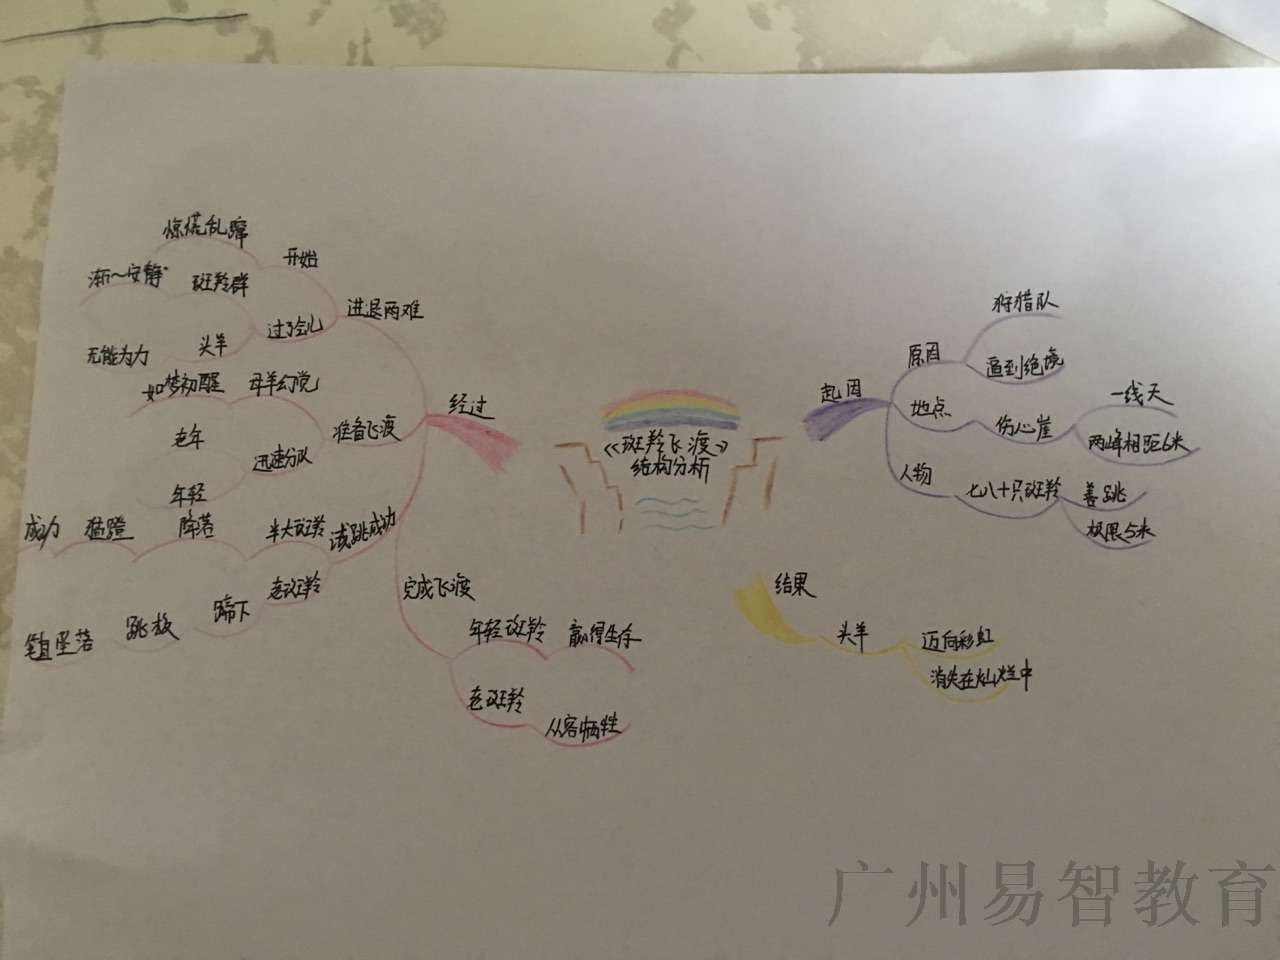 《斑羚飞渡》
结构分析
起因
原因
狩猎队
逼到绝境
地点
伤心崖
一线天
两峰相距6米
人物
七八十只斑羚
善跳
极限5米
经过
进退两难
开始
惊慌乱蹿
过了会儿
斑羚群
渐~安静
头羊
无能为力
准备飞渡
母羊幻觉
如梦初醒
迅速分队
老年
年轻
试跳成功
半大斑羚
降落
猛蹬
成功
老斑羚
蹄下
跳板
笔直坠落
完成飞渡
年轻斑羚
赢得生存
老斑羚
从容牺牲
结果
头羊
迈向彩虹
消失在灿烂中
广州易智教育